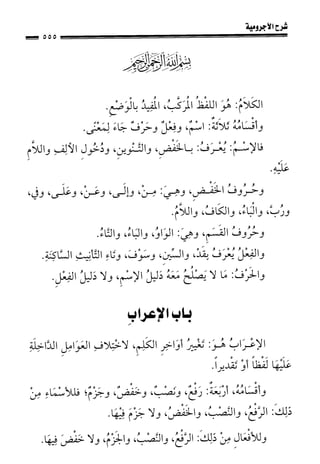 شرح الآجرومية
٥٥٥
بسم الله الرحمن الرحيم
الكَلَامُ: هُوَ اللفْظُ المُرَكَّبُ، المُفِيدُ بِالْوَضْعِ.
وَأَقْسَامُهُ ثَلَاثَةٌ: اسْمٌ، وفِعْلٌ وحَرْفٌ جَاءَ لِمَعْنًى.
فَالاِسْمُ: يُعْرَفُ: بِالخَفْضِ، والتَّنْوِينِ، ودُخُولِ الأَلِفِ واللَّامِ
عَلَيْهِ.
وحُرُوفُ الخَفْضِ، وهِيَ: مِنْ، وإِلَى، وعَنْ، وعَلَى، وفِي،
ورُبَّ، والْبَاءُ، والكَافُ، واللَّامُ.
وحُرُوفُ القَسَمِ، وهِيَ: الوَاوُ، والبَاءُ، والتَّاءُ.
والفِعْلُ يُعْرَفُ بِقَدْ، والسِّينِ، وسَوْفَ، وتَاءِ التَّأْنِيثِ السَّاكِنَةِ.
والحَرْفُ: مَا لَا يَصْلُحُ مَعَهُ دَلِيلُ الإِسْمِ، ولَا دَلِيلُ الفِعْلِ.
باب الإعراب
الإِعْرَابُ هُوَ: تَغْيِيرُ أَوَاخِرِ الكَلِمِ، لاخْتِلَافِ العَوَامِلِ الدَّاخِلَةِ
عَلَيْهَا لَفْظاً أَوْ تَقْدِيراً.
وأَقْسَامُهُ، أَرْبَعَةٌ: رَفْعٌ، ونَصْبٌ، وخَفْضٌ، وجَزْمٌ؛ فلِلْأَسْمَاءِ مِنْ
ذلِكَ: الرَّفْعُ، والنَّصْبُ، والخَفْضُ، ولا جَزْمَ فِيهَا.
وللأفْعَالِ مِنْ ذَلِكَ: الرَّفْعُ، والنَّصْبُ، والجَزْمُ، ولا خَفْضَ فِيهَا.